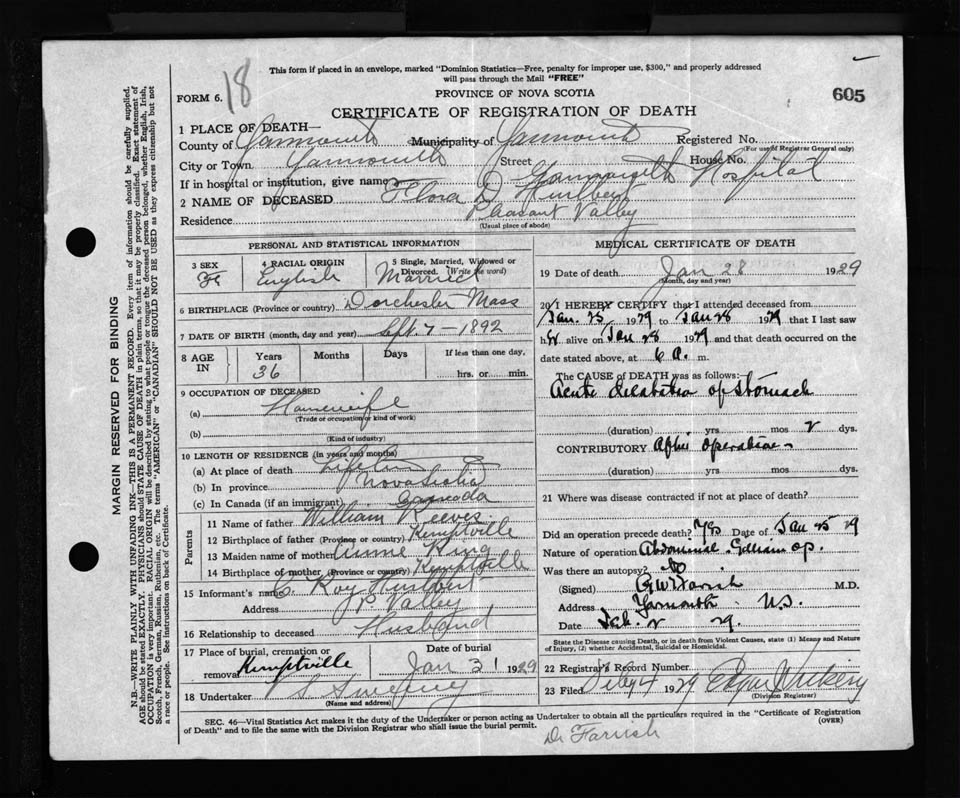 18
This form if placed in an envelope, marked "Dominion Statistics—Free, penalty for improper use, $300," and properly addressed
will pass through the Mail "FREE"
605
FORM 6.
PROVINCE OF NOVA SCOTIA
CERTIFICATE OF REGISTRATION OF DEATH
1 PLACE OF DEATH—
County of Yarmouth Municipality of Yarmouth Registered No.
(For use of Registrar General only)
City or Town Yarmouth Street House No.
If in hospital or institution, give name Yarmouth Hospital
2 NAME OF DECEASED Flora D Hurlbert
Residence Pleasant Valley
(Usual place of abode)
PERSONAL AND STATISTICAL INFORMATION
3 SEX
4 RACIAL ORIGIN English
5 Single, Married, Widowed or Divorced. (Write the word) Married
6 BIRTHPLACE (Province or country) Dorchester Mass
7 DATE OF BIRTH (month, day and year) Sept. 7 - 1892
8 AGE IN Years 36 Months Days If less than one day, hrs. or min.
9 OCCUPATION OF DECEASED
(a) Housewife
(Trade or occupation or kind of work)
(b)
(Kind of industry)
10 LENGTH OF RESIDENCE (in years and months)
(a) At place of death Lifetime
(b) In province Nova Scotia
(c) In Canada (if an immigrant) Canada
Parents
11 Name of father William Reeves
12 Birthplace of father (Province or country) Kemptville
13 Maiden name of mother Annie King
14 Birthplace of mother (Province or country) Kemptville
15 Informant's name C. Roy Hurlbert
Address P. Valley
16 Relationship to deceased Husband
17 Place of burial, cremation or removal Kemptville
Date of burial Jan 31 1929
18 Undertaker S Sweeney
(Name and address)
MEDICAL CERTIFICATE OF DEATH
19 Date of death Jan 28 1929
(Month, day and year)
20 I HEREBY CERTIFY that I attended deceased from
Jan. 25 1929 to Jan 28 1929 that I last saw
her alive on Jan 28 1929 and that death occurred on the
date stated above, at 6 A. m.
The CAUSE of DEATH was as follows:
Acute dilatation of stomach
(duration) yrs mos 2 dys.
CONTRIBUTORY After operation
(duration) yrs mos dys.
21 Where was disease contracted if not at place of death?
Did an operation precede death? Yes Date of Jan 25 29
Nature of operation Abdominal Gilliam op.
Was there an autopsy? No
(Signed) G.W. Farish M.D.
Address Yarmouth N.S.
Date Feb. 2 29.
State the Disease causing Death, or in death from Violent Causes, state (1) Means and Nature
of Injury, (2) whether Accidental, Suicidal or Homicidal.
22 Registrar's Record Number
23 Filed Feby 4 1929
(Division Registrar)
SEC. 46—Vital Statistics Act makes it the duty of the Undertaker or person acting as Undertaker to obtain all the particulars required in the "Certificate of Registration
of Death" and to file the same with the Division Registrar who shall issue the burial permit.
(OVER)
Dr Farrish
MARGIN RESERVED FOR BINDING
N.B.—WRITE PLAINLY WITH UNFADING INK—THIS IS A PERMANENT RECORD. Every item of information should be carefully supplied.
AGE should be stated EXACTLY. PHYSICIANS should STATE CAUSE OF DEATH in plain terms, so that it may be properly classified. Exact statement of
OCCUPATION is very important. RACIAL ORIGIN will be described by stating to what people or tongue the deceased person belonged, whether English, Irish,
Scotch, French, German, Russian, Ruthenian, etc. The terms "AMERICAN" or "CANADIAN" SHOULD NOT BE USED as they express citizenship but not
a race or people. See instructions on back of Certificate.